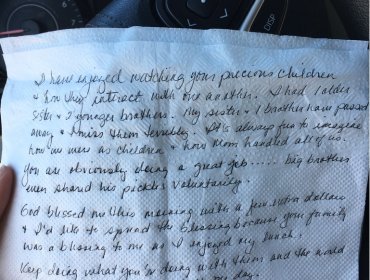 DISP
I have enjoyed watching your precious children
& how they interact with one another. I had 1 older
sister & 2 younger brothers. My sister & 1 brother have passed
away & I miss them terribly. It's always fun to imagine
how we were as children & how Mom handled all of us.
You are obviously doing a great job..... big brother
even shared his pickle voluntarily.
God blessed me this morning with a few extra dollars
& I'd like to spread the blessing because your family
was a blessing to me as I enjoyed my lunch.
Keep doing what you're doing with them and the world
my day.